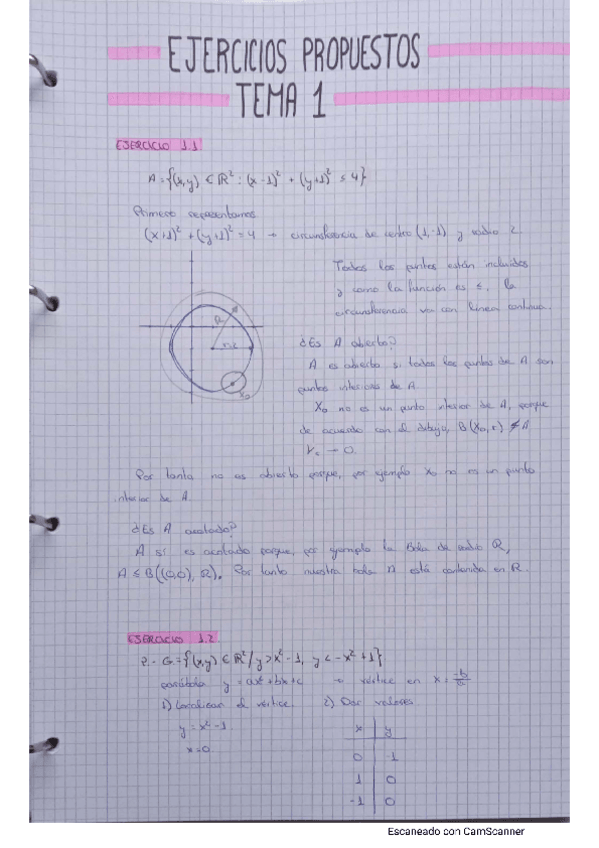 EJERCICIOS PROPUESTOS
TEMA 1
EJERCICIO 1.1
A = {(x,y) ∈ R² : (x-1)² + (y+1)² ≤ 4}
Primero representamos
(x+1)² + (y+1)² = 4 → circunferencia de centro (1,-1) y radio 2.
Todos los puntos están incluidos
y como la función es ≤, la
circunferencia va con línea continua.
¿Es A abierto?
A es abierto si todos los puntos de A son
puntos interiores de A.
X₀ no es un punto interior de A, porque
de acuerdo con el dibujo, B(X₀,r) ⊄ A
x₀
Por tanto no es abierto porque, por ejemplo x₀ no es un punto
interior de A.
¿Es A acotado?
A sí es acotado porque, por ejemplo la Bola de radio R,
A ≤ B((0,0), R). Por tanto nuestra bola A está contenida en R.
EJERCICIO 1.2
2 - G = {(x,y) ∈ R² / y > x² - 1, y < -x² + 1}
parábola y = ax² + bx + c → vértice en x = -b
1) Localizar el vértice. 2) Dar valores.
y = x² - 1
x = 0
x y
0 -1
1 0
-1 0
Escaneado con CamScanner